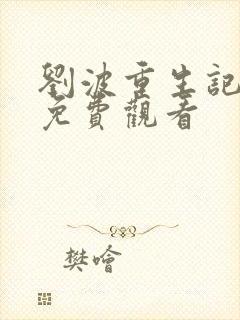 劉波重生記
免費觀看
樊噲